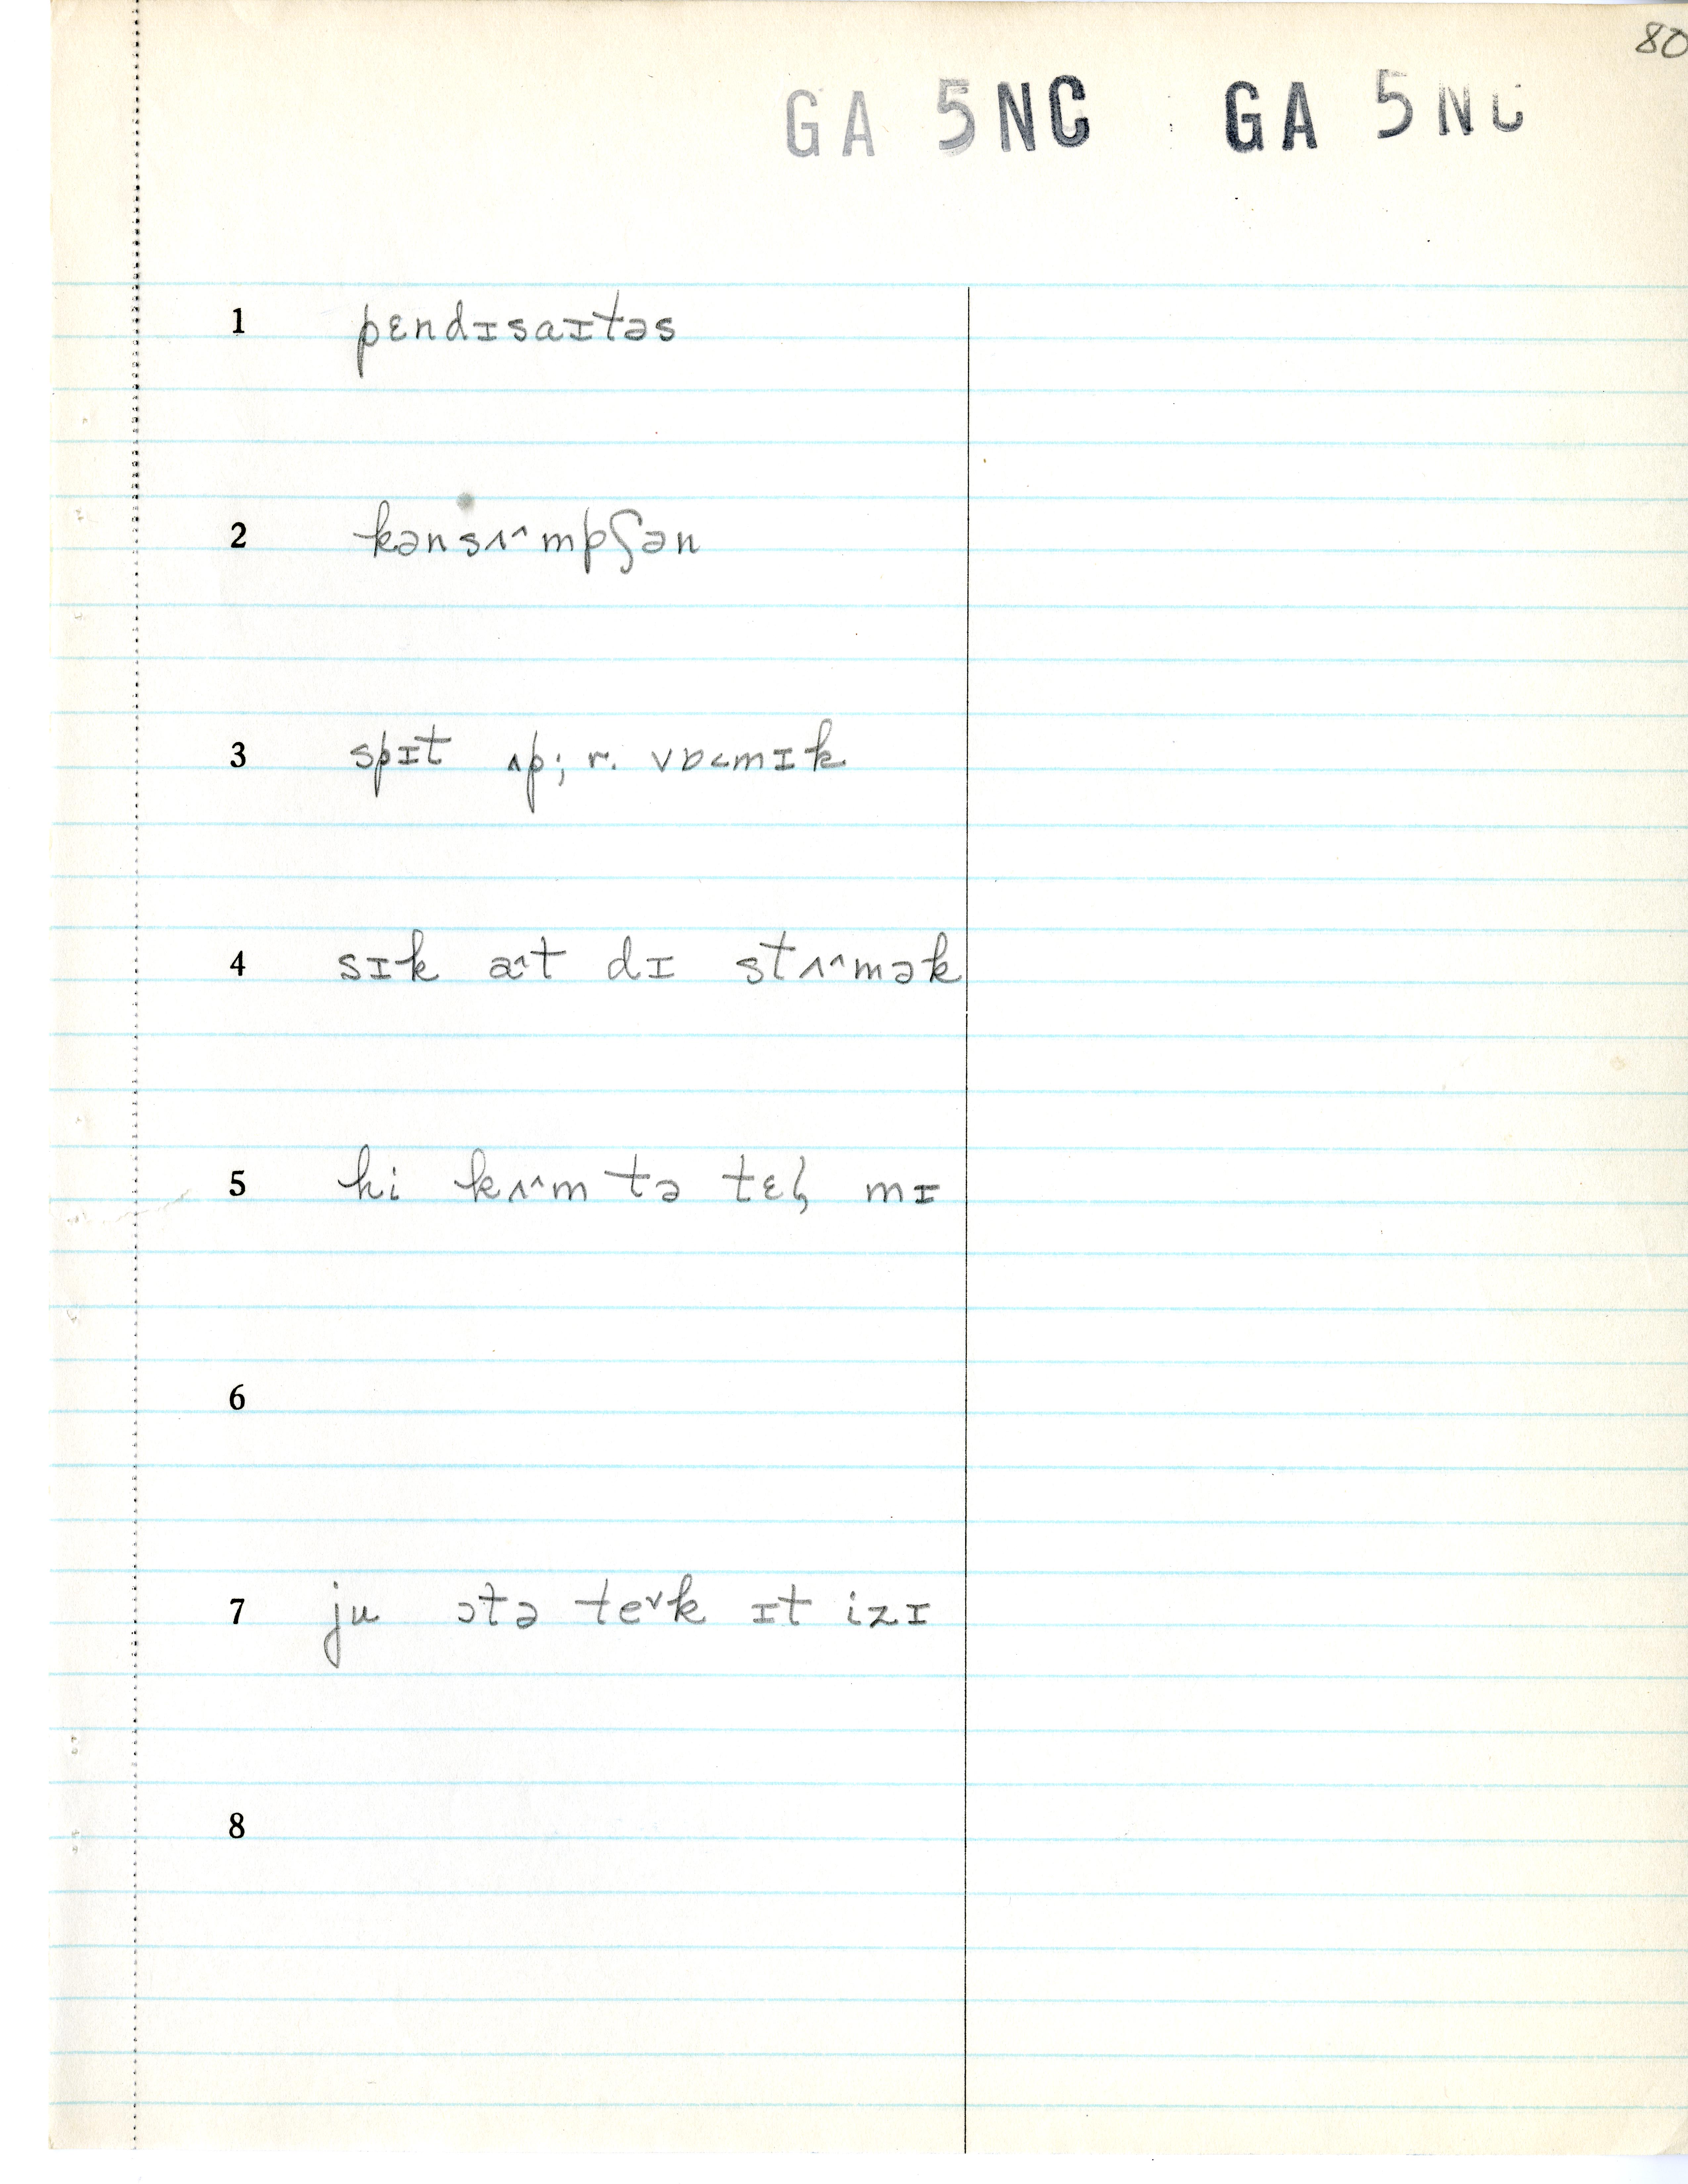 80
GA 5NC GA 5NC
1 pɛndɪsaɪtəs
2 kənsʌ^mpʃən
3 spɪt ʌp; r. vɒ<mɪk
4 sɪk a^t dɪ stʌ^mək
5 hi kʌ^m tə tɛɫ mɪ
6
7 ju ɔtə te˅k ɪt izɪ
8